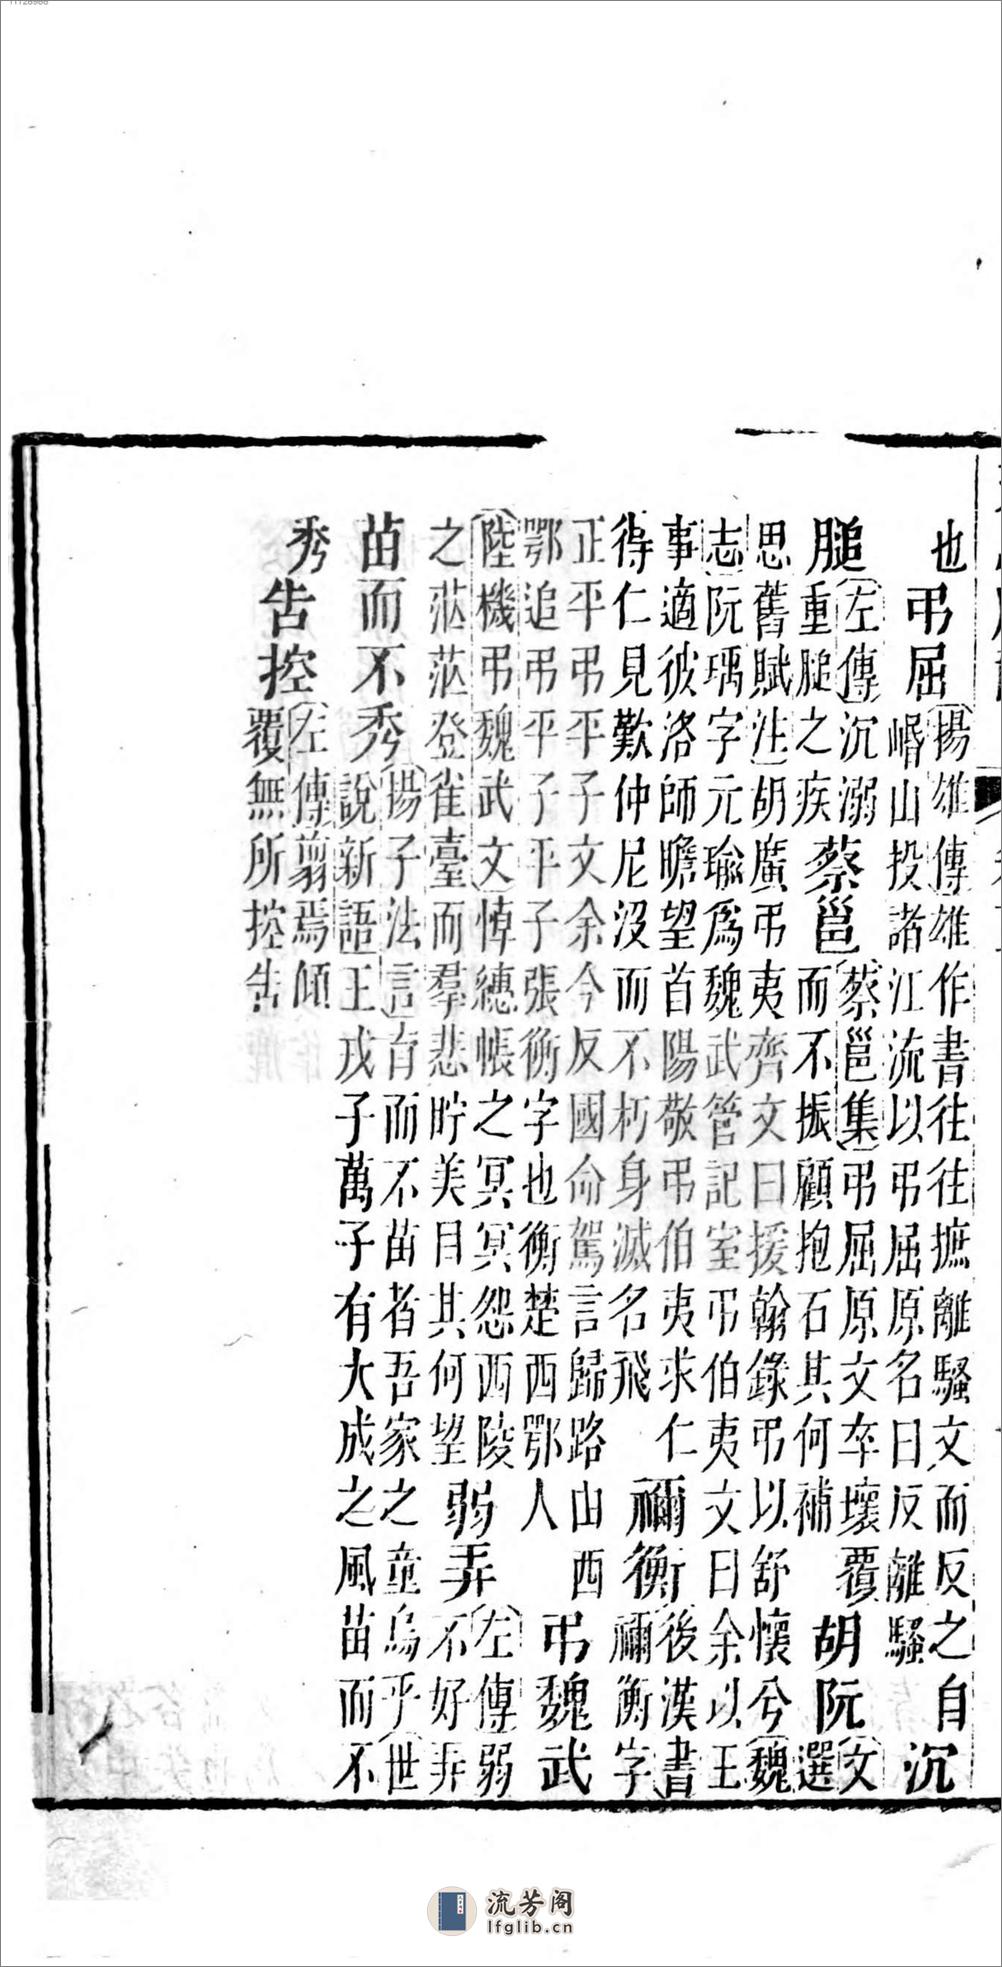 也
弔屈
揚雄傳雄作書往往摭離騷文而反之自
岷山投諸江流以弔屈原名曰反離騷
沉
膇
左傳沉溺
重膇之疾
蔡邕
蔡邕集弔屈原文卒壞覆
而不振顧抱石其何補
胡阮
文
選
思舊賦注胡廣弔夷齊文曰援翰錄弔以舒懷兮魏
志阮瑀字元瑜爲魏武管記室弔伯夷文曰余以王
事適彼洛師瞻望首陽敬弔伯夷求仁
得仁見歎仲尼沒而不朽身滅名飛
禰衡
後漢書
禰衡字
正平弔平子文余今反國命駕言歸路山西
鄂追弔平子平子張衡字也衡楚西鄂人
弔魏武
陸機弔魏武文悼繐帳之冥冥怨西陵
之茫茫登雀臺而羣悲貯美目其何望
弱弄
左傳弱
不好非
苗而不秀
揚子法言育而不苗者吾家之童烏乎世
說新語王戎子萬子有大成之風苗而不
秀
告控
左傳翦焉傾
覆無所控告
流芳阁
lfglib.cn